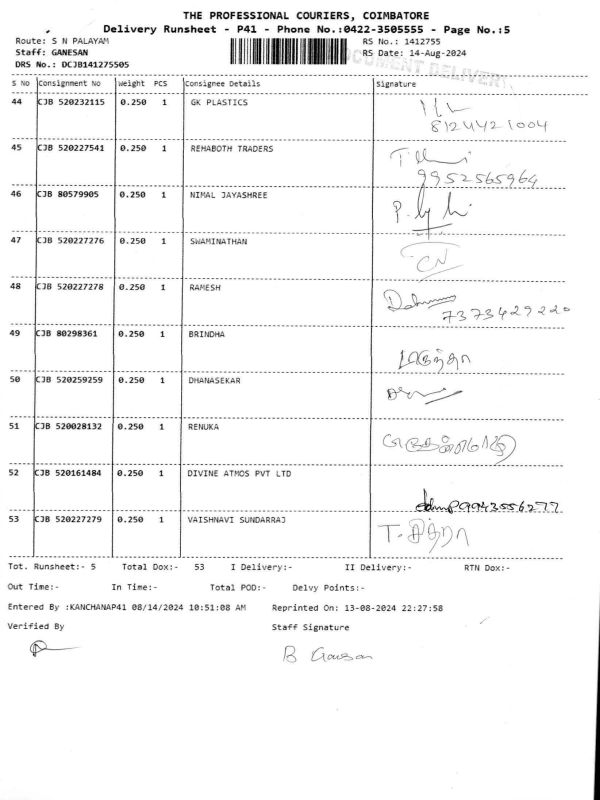 THE PROFESSIONAL COURIERS, COIMBATORE
Delivery Runsheet - P41 - Phone No.:0422-3505555 - Page No.:5
Route: S N PALAYAM RS No.: 1412755
Staff: GANESAN RS Date: 14-Aug-2024
DRS No.: DCJB141275505
DOCUMENT DELIVERY
S No Consignment No Weight PCS Consignee Details Signature
44 CJB 520232115 0.250 1 GK PLASTICS
8124421004
45 CJB 520227541 0.250 1 REHABOTH TRADERS
9952565964
46 CJB 80579905 0.250 1 NIMAL JAYASHREE
47 CJB 520227276 0.250 1 SWAMINATHAN
CN
48 CJB 520227278 0.250 1 RAMESH
7373429220
49 CJB 80298361 0.250 1 BRINDHA
50 CJB 520259259 0.250 1 DHANASEKAR
51 CJB 520028132 0.250 1 RENUKA
52 CJB 520161484 0.250 1 DIVINE ATMOS PVT LTD
9943556277
53 CJB 520227279 0.250 1 VAISHNAVI SUNDARRAJ
T. சித்ரா
Tot. Runsheet:- 5 Total Dox:- 53 I Delivery:- II Delivery:- RTN Dox:-
Out Time:- In Time:- Total POD:- Delvy Points:-
Entered By :KANCHANAP41 08/14/2024 10:51:08 AM Reprinted On: 13-08-2024 22:27:58
Verified By Staff Signature
B Ganesan